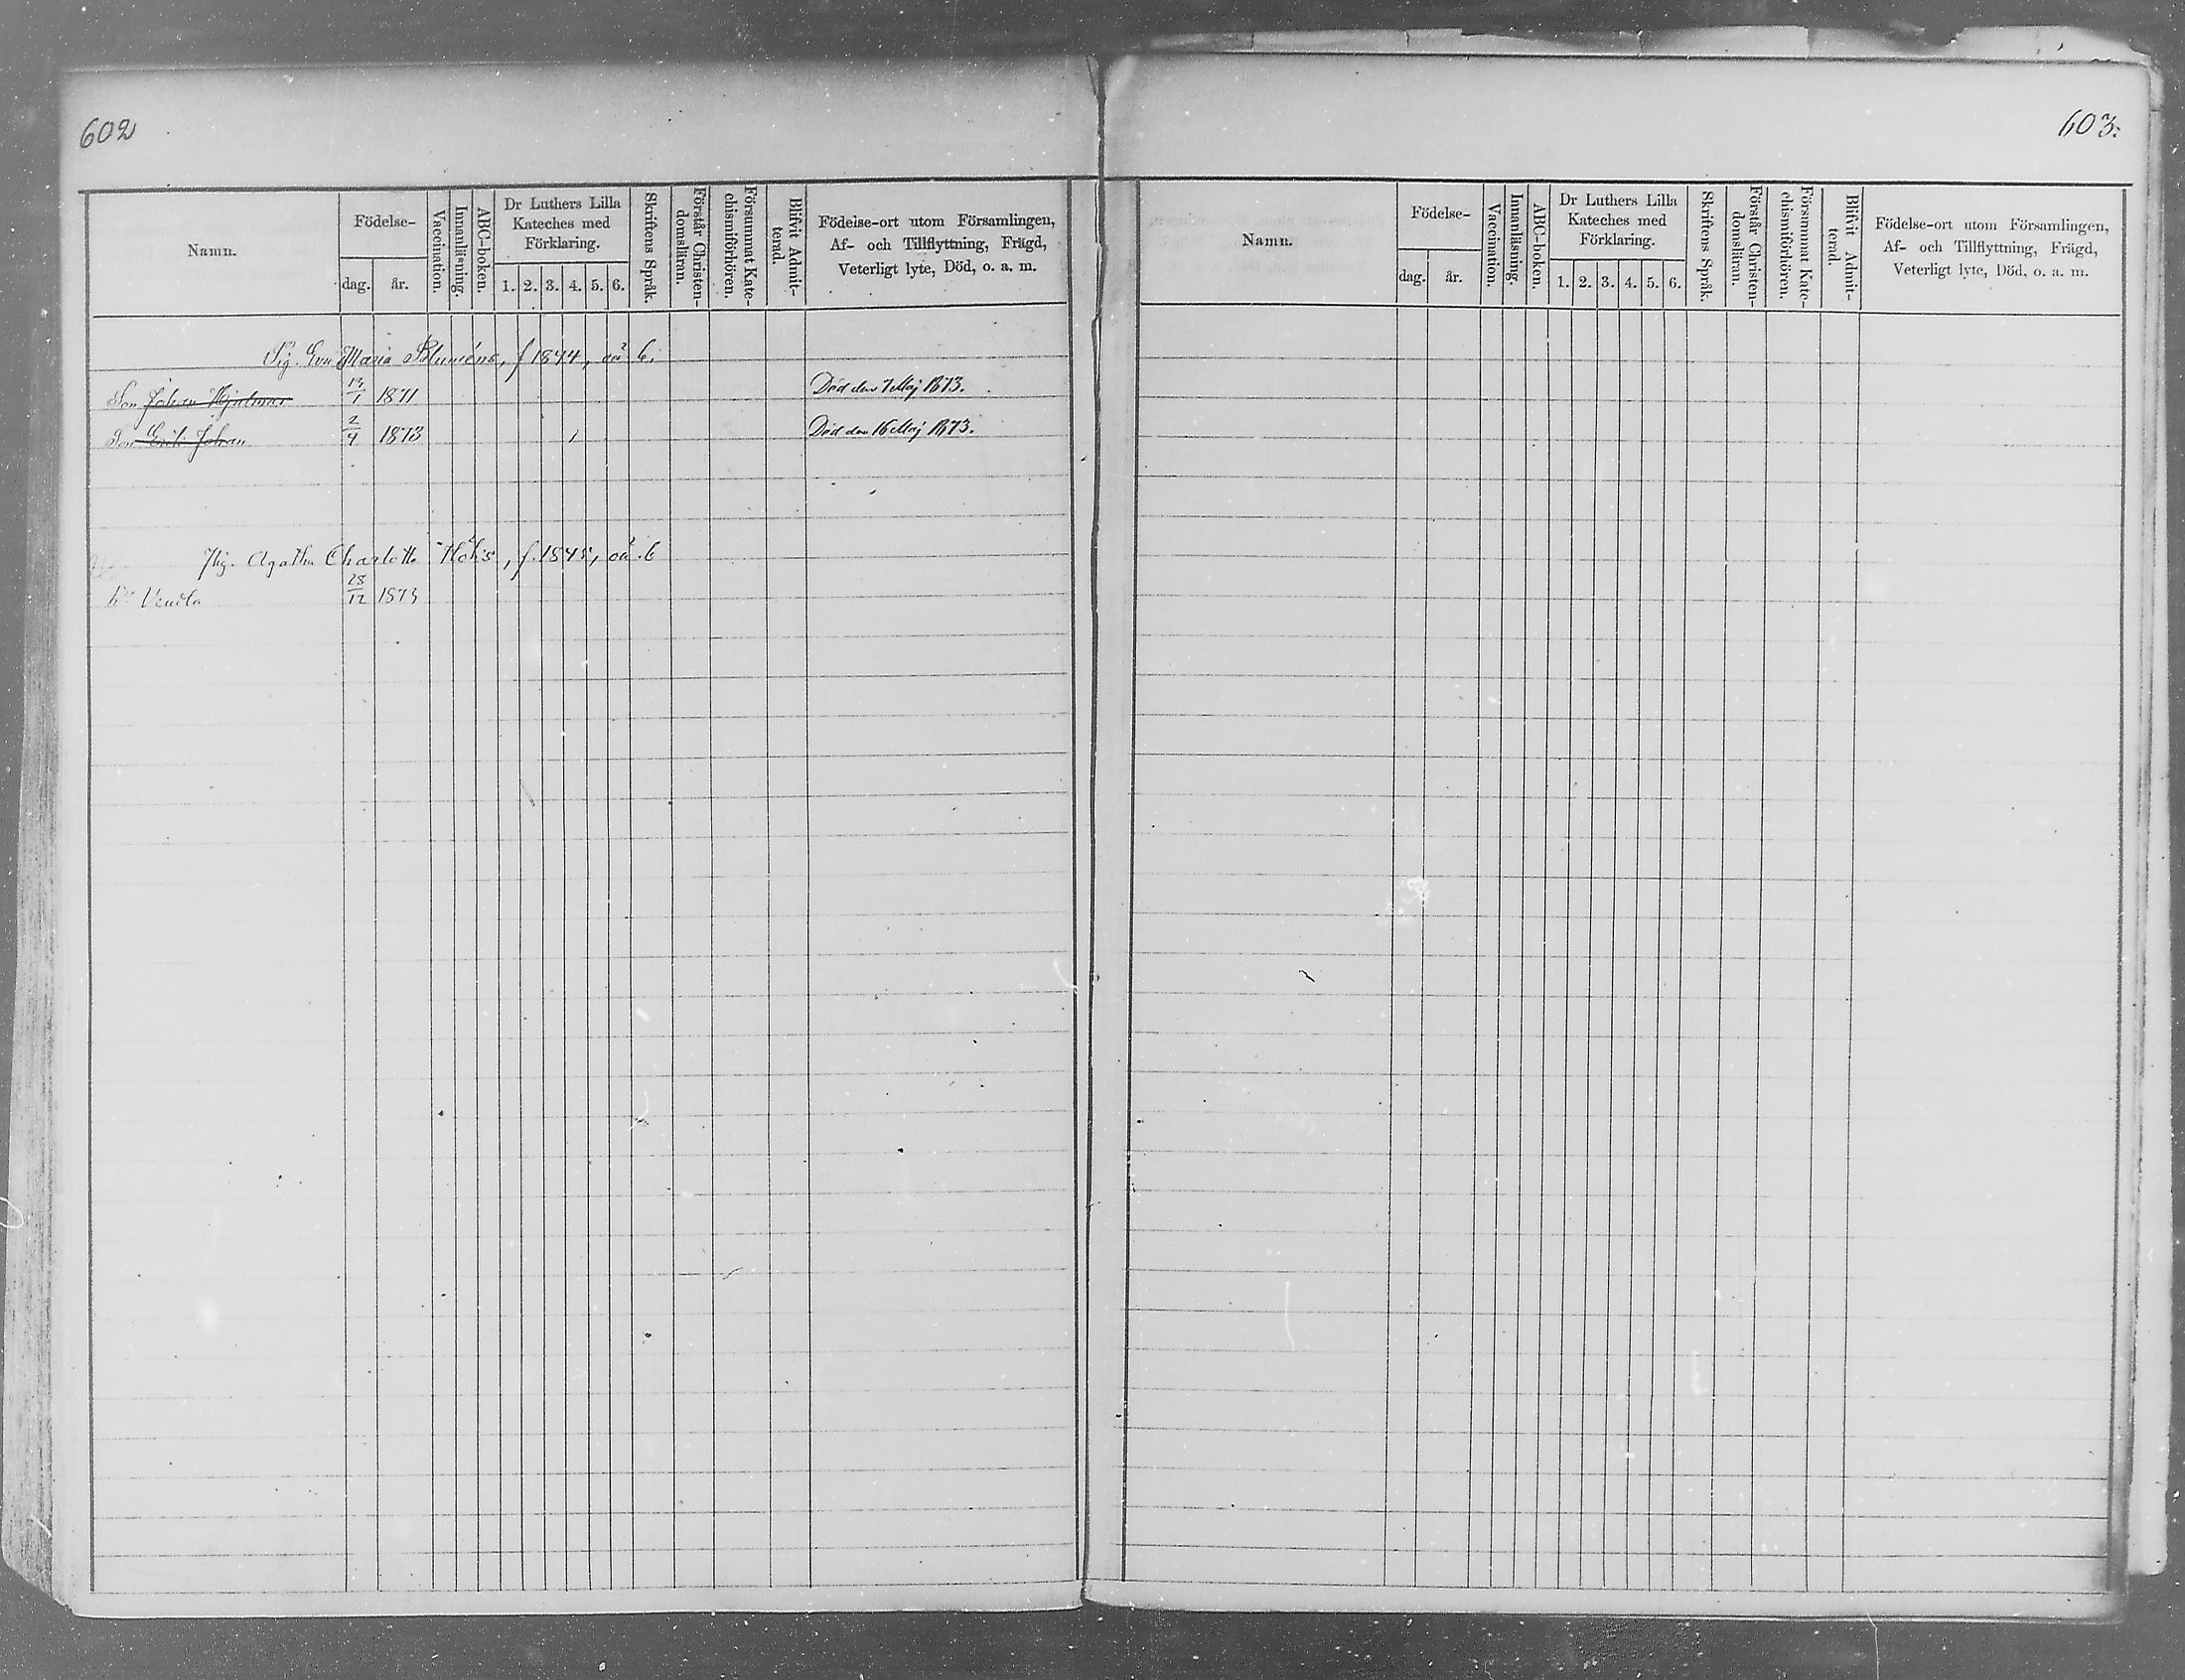 602
Namn.
Födelse-
dag.
år.
Vaccination.
Innanläsning.
ABC-boken.
Dr Luthers Lilla
Kateches med
Förklaring.
1. 2. 3. 4. 5. 6.
Skriftens Språk.
Förstår Christen-
domsläran.
Försummat Kate-
chismiförhören.
Blifvit Admit-
terad.
Födelse-ort utom Församlingen,
Af- och Tillflyttning, Frägd,
Veterligt lyte, Död, o. a. m.
Maria f 1844, 6.
Son Johan Hjalmar 13/1 1871 Död den 7 Maj 1873.
Son Johan 2/4 1873 Död den 16 Maj 1873.
Agatha Charlotta f. 1845, 6
Vendla 28/12 1873
603.
Namn.
Födelse-
dag.
år.
Vaccination.
Innanläsning.
ABC-boken.
Dr Luthers Lilla
Kateches med
Förklaring.
1. 2. 3. 4. 5. 6.
Skriftens Språk.
Förstår Christen-
domsläran.
Försummat Kate-
chismiförhören.
Blifvit Admit-
terad.
Födelse-ort utom Församlingen,
Af- och Tillflyttning, Frägd,
Veterligt lyte, Död, o. a. m.